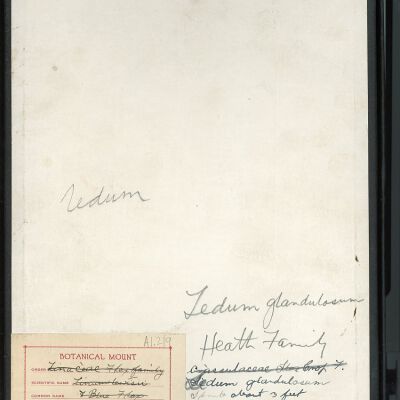 Ledum
Ledum glandulosum
Heath Family
A1.29
BOTANICAL MOUNT
ORDER Linaceae Flax family
SCIENTIFIC NAME Linum lewisii
COMMON NAME Blue Flax
Crassulaceae
Ledum glandulosum
about 3 feet